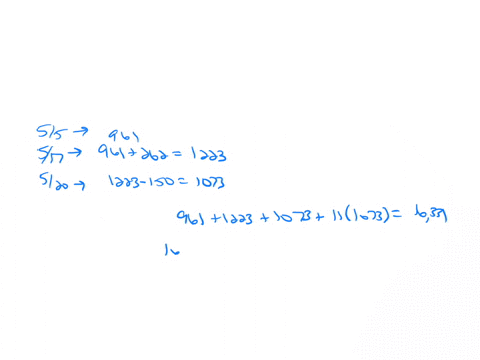 5/5 → 961
5/17 → 961 + 262 = 1223
5/20 → 1223 - 150 = 1073
961 + 1223 + 1073 + 11(1073) =
16